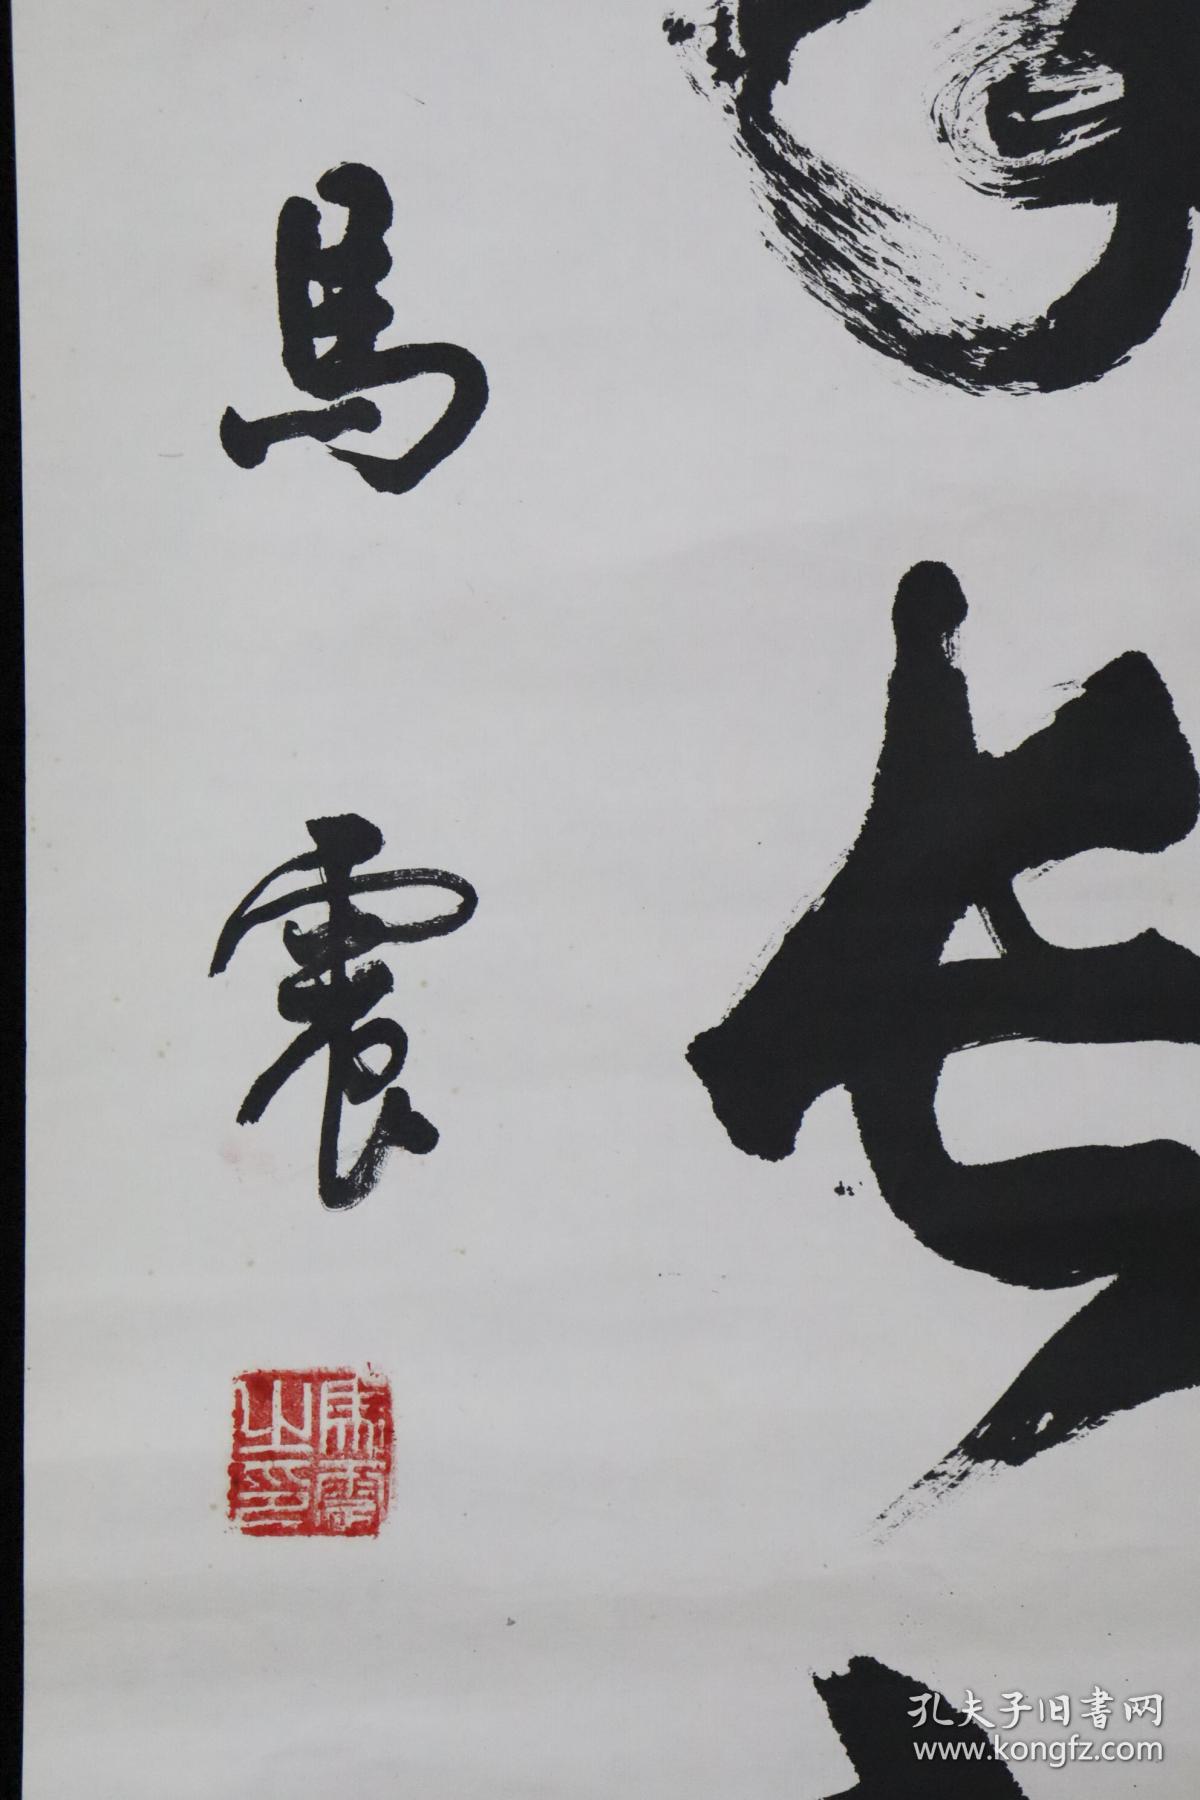 長
馬震
馬震之印
孔夫子旧書网
www.kongfz.com